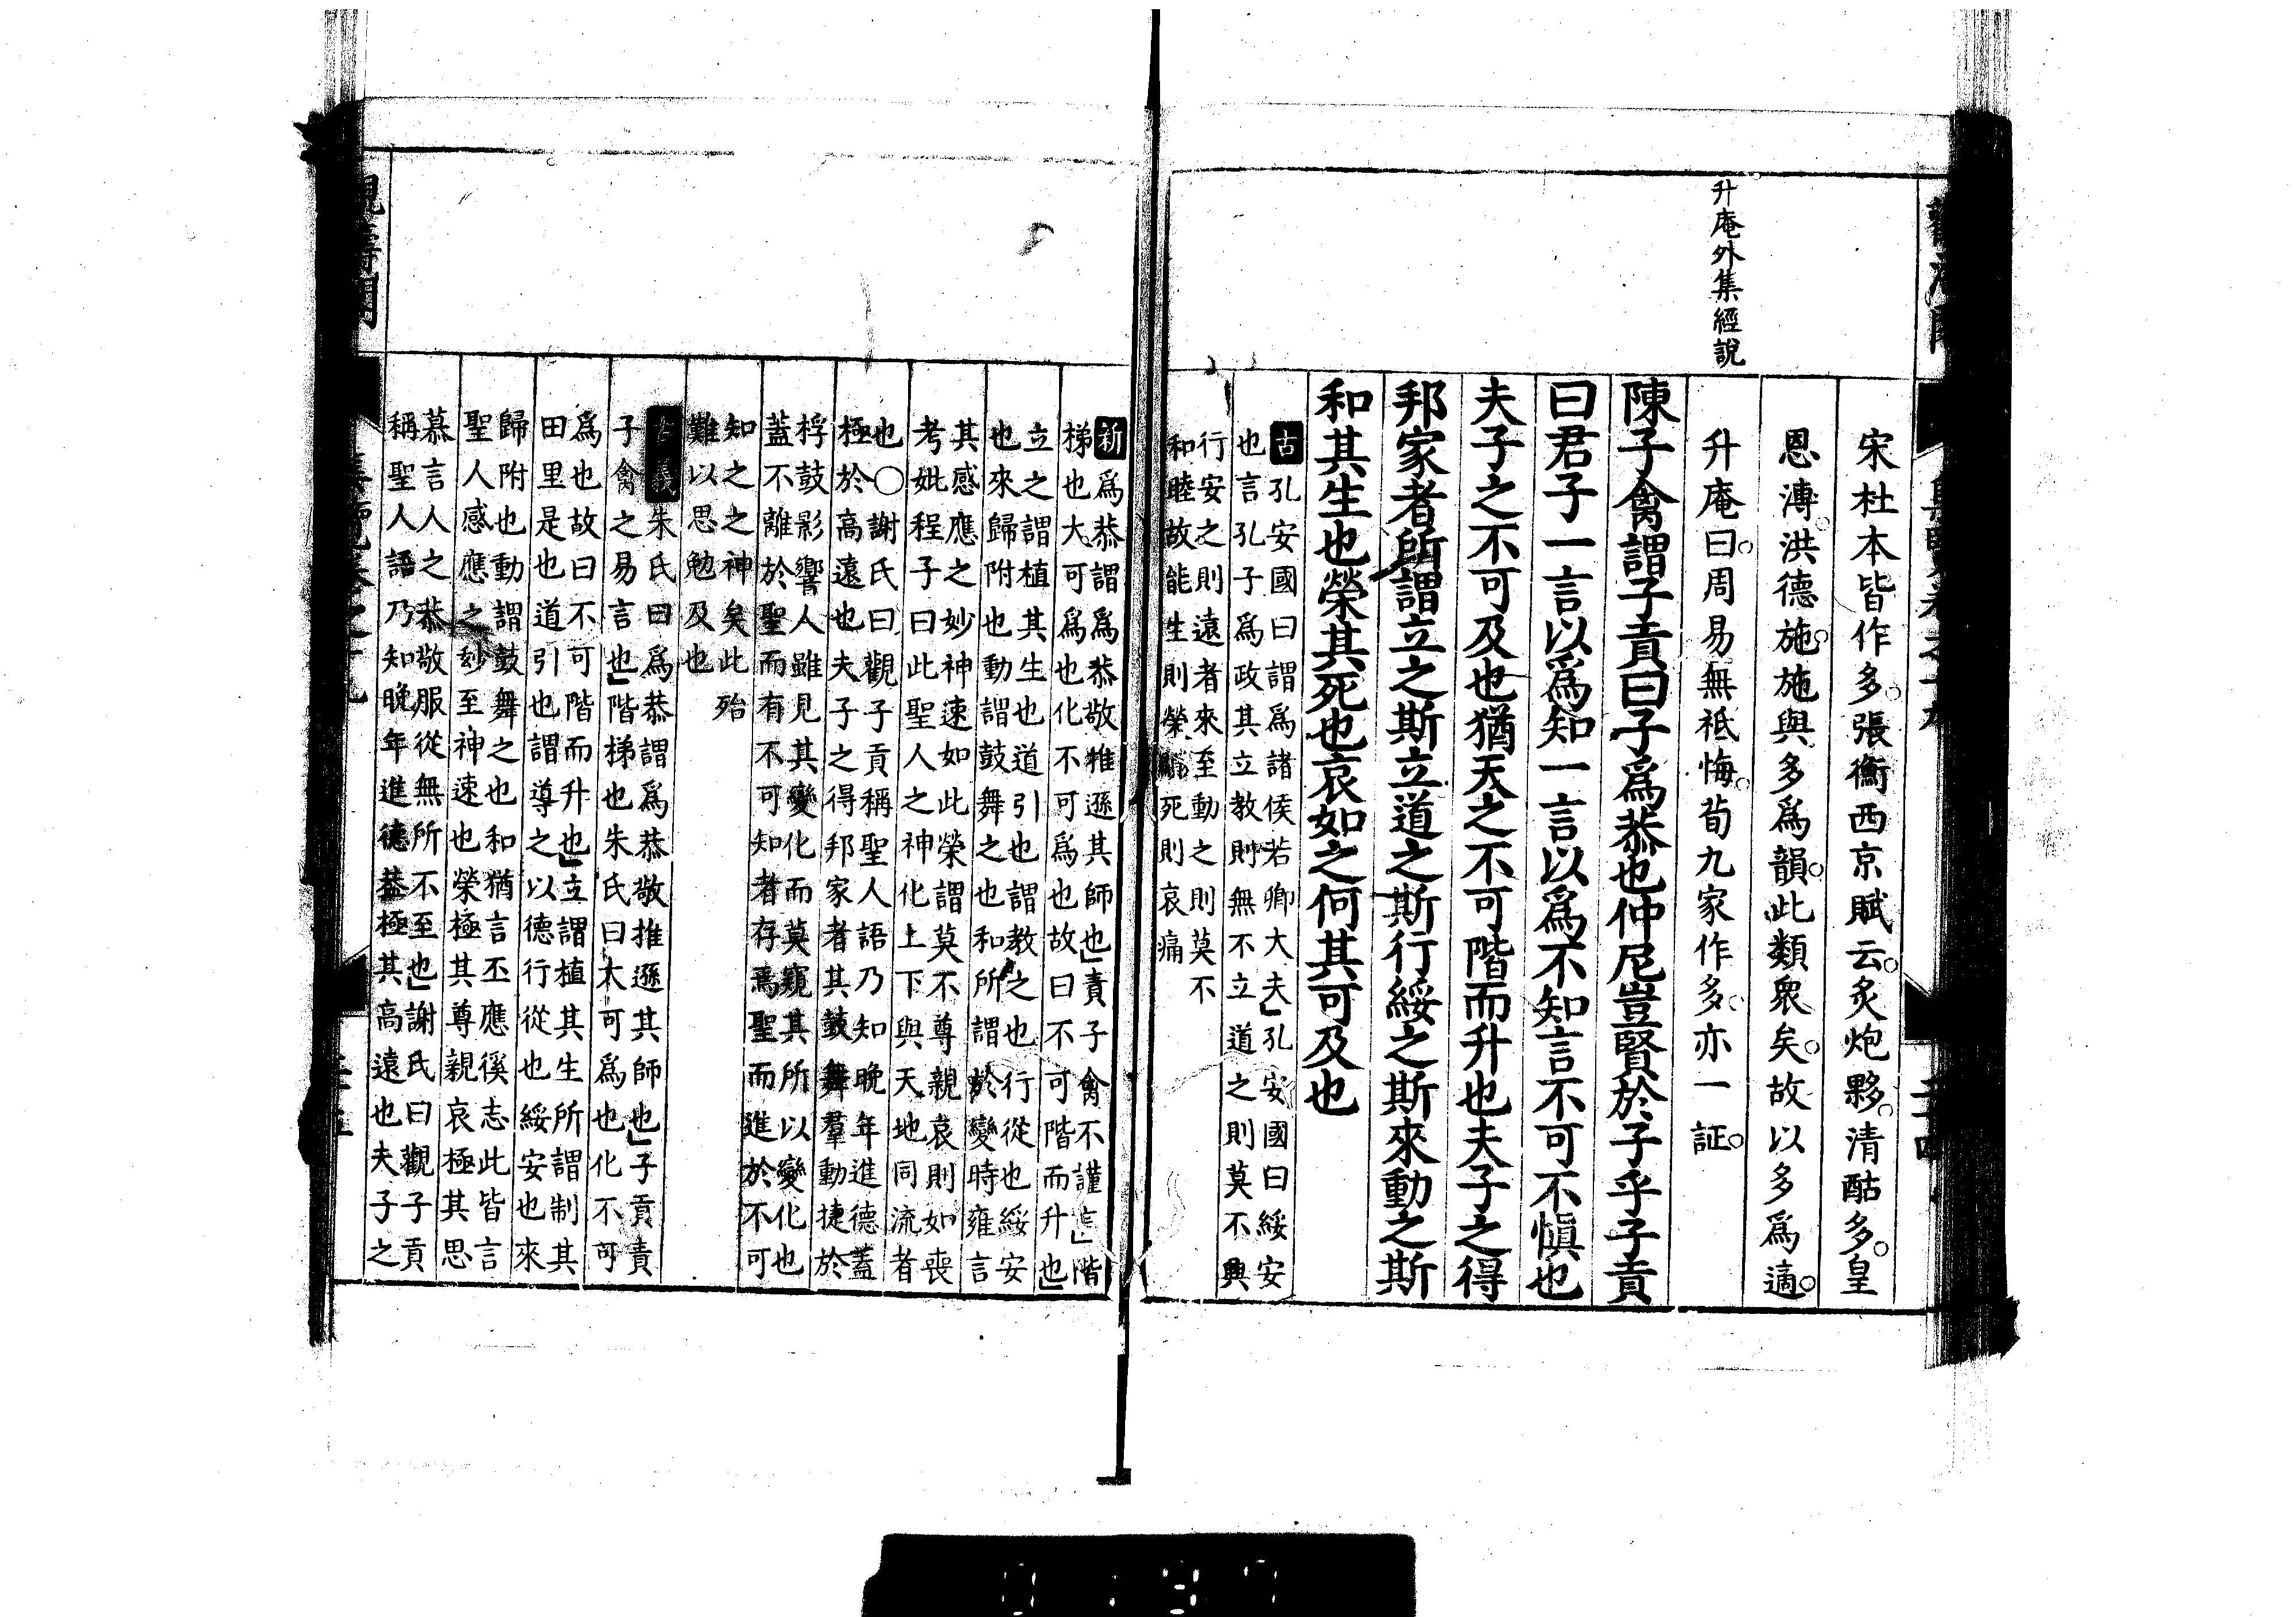 升庵外集經說
宋杜本皆作多張衡西京賦云炙炮夥清酤多皇
恩溥洪德施施與多爲韻此類衆矣故以多爲適
升庵曰周易無祗悔荀九家作多亦一証
陳子禽謂子貢曰子爲恭也仲尼豈賢於子乎子貢
曰君子一言以爲知一言以爲不知言不可不愼也
夫子之不可及也猶天之不可階而升也夫子之得
邦家者所謂立之斯立道之斯行綏之斯來動之斯
和其生也榮其死也哀如之何其可及也
古孔安國曰謂爲諸侯若卿大夫」孔安國曰綏安
也言孔子爲政其立敎則無不立道之則莫不興
行安之則遠者來至動之則莫不
和睦故能生則榮死則哀痛
新爲恭謂爲恭敬推遜其師也」責子禽不謹言」階
梯也大可爲也化不可爲也故曰不可階而升也」
立之謂植其生也道引也謂教之也行從也綏安
也來歸附也動謂鼓舞之也和所謂於變時雍言
其感應之妙神速如此榮謂莫不尊親哀則如喪
考妣程子曰此聖人之神化上下與天地同流者
也〇謝氏曰觀子貢稱聖人語乃知晚年進德蓋
極於高遠也夫子之得邦家者其鼓舞羣動捷於
桴鼓影響人雖見其變化而莫窺其所以變化也
蓋不離於聖而有不可知者存焉聖而進於不可
知之之神矣此殆
難以思勉及也
古義朱氏曰爲恭謂爲恭敬推遜其師也」子貢責
子禽之易言也」階梯也朱氏曰大可爲也化不可
爲也故曰不可階而升也」立謂植其生所謂制其
田里是也道引也謂導之以德行從也綏安也來
歸附也動謂鼓舞之也和猶言丕應徯志此皆言
聖人感應之妙至神速也榮極其尊親哀極其思
慕言人之恭敬服從無所不至也」謝氏曰觀子貢
稱聖人語乃知晚年進德蓋極其高遠也夫子之